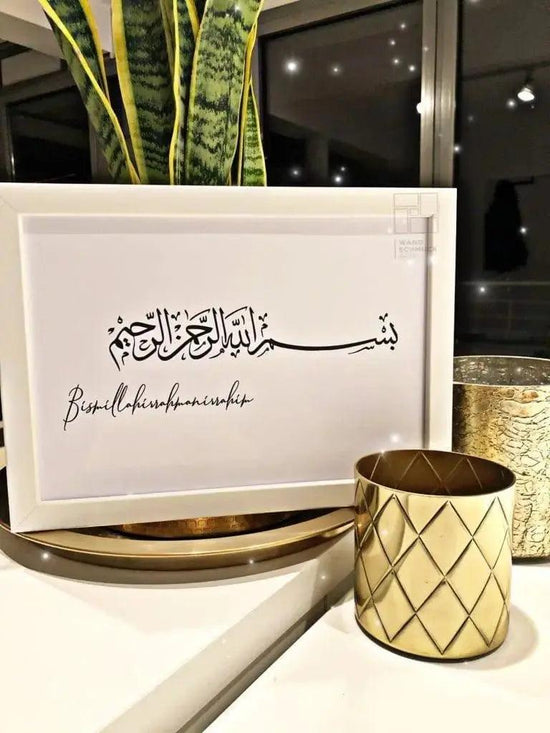 WAND
SCHMUCK
بِسْمِ اللهِ الرَّحْمٰنِ الرَّحِيْمِ
Bismillahirrahmanirrahim